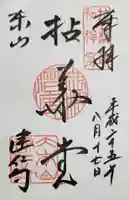 奉拝
平成二十五年
八月十七日
拈華堂
東山
建仁寺